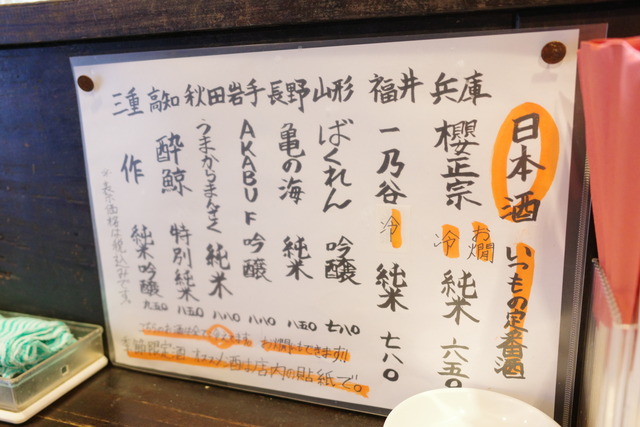 日本酒 いつもの定番酒
兵庫 櫻正宗 冷 お燗 純米 六五〇
福井 一乃谷 冷 純米 七八〇
山形 ばくれん 吟醸 七八〇
長野 亀の海 純米 八五〇
岩手 AKABU F 吟醸 八八〇
秋田 うまからまんさく 純米 八八〇
高知 酔鯨 特別純米 八五〇
三重 作 純米吟醸 九五〇
※表示価格は税込みです
お燗もできます!!
季節限定酒 オススメ酒は店内の貼紙で。